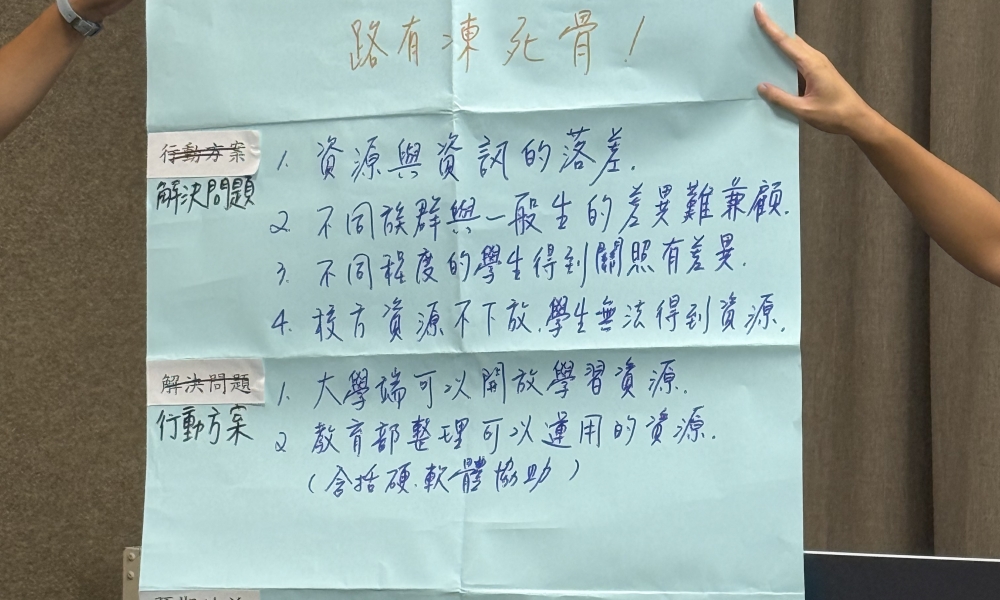 路有凍死骨!
行動方案
解決問題
1. 資源與資訊的落差.
2. 不同族群與一般生的差異難兼顧.
3. 不同程度的學生得到關照有差異.
4. 校方資源不下放.學生無法得到資源.
解決問題
行動方案
1. 大學端可以開放學習資源.
2. 教育部整理可以運用的資源.
(含括硬.軟體協助)